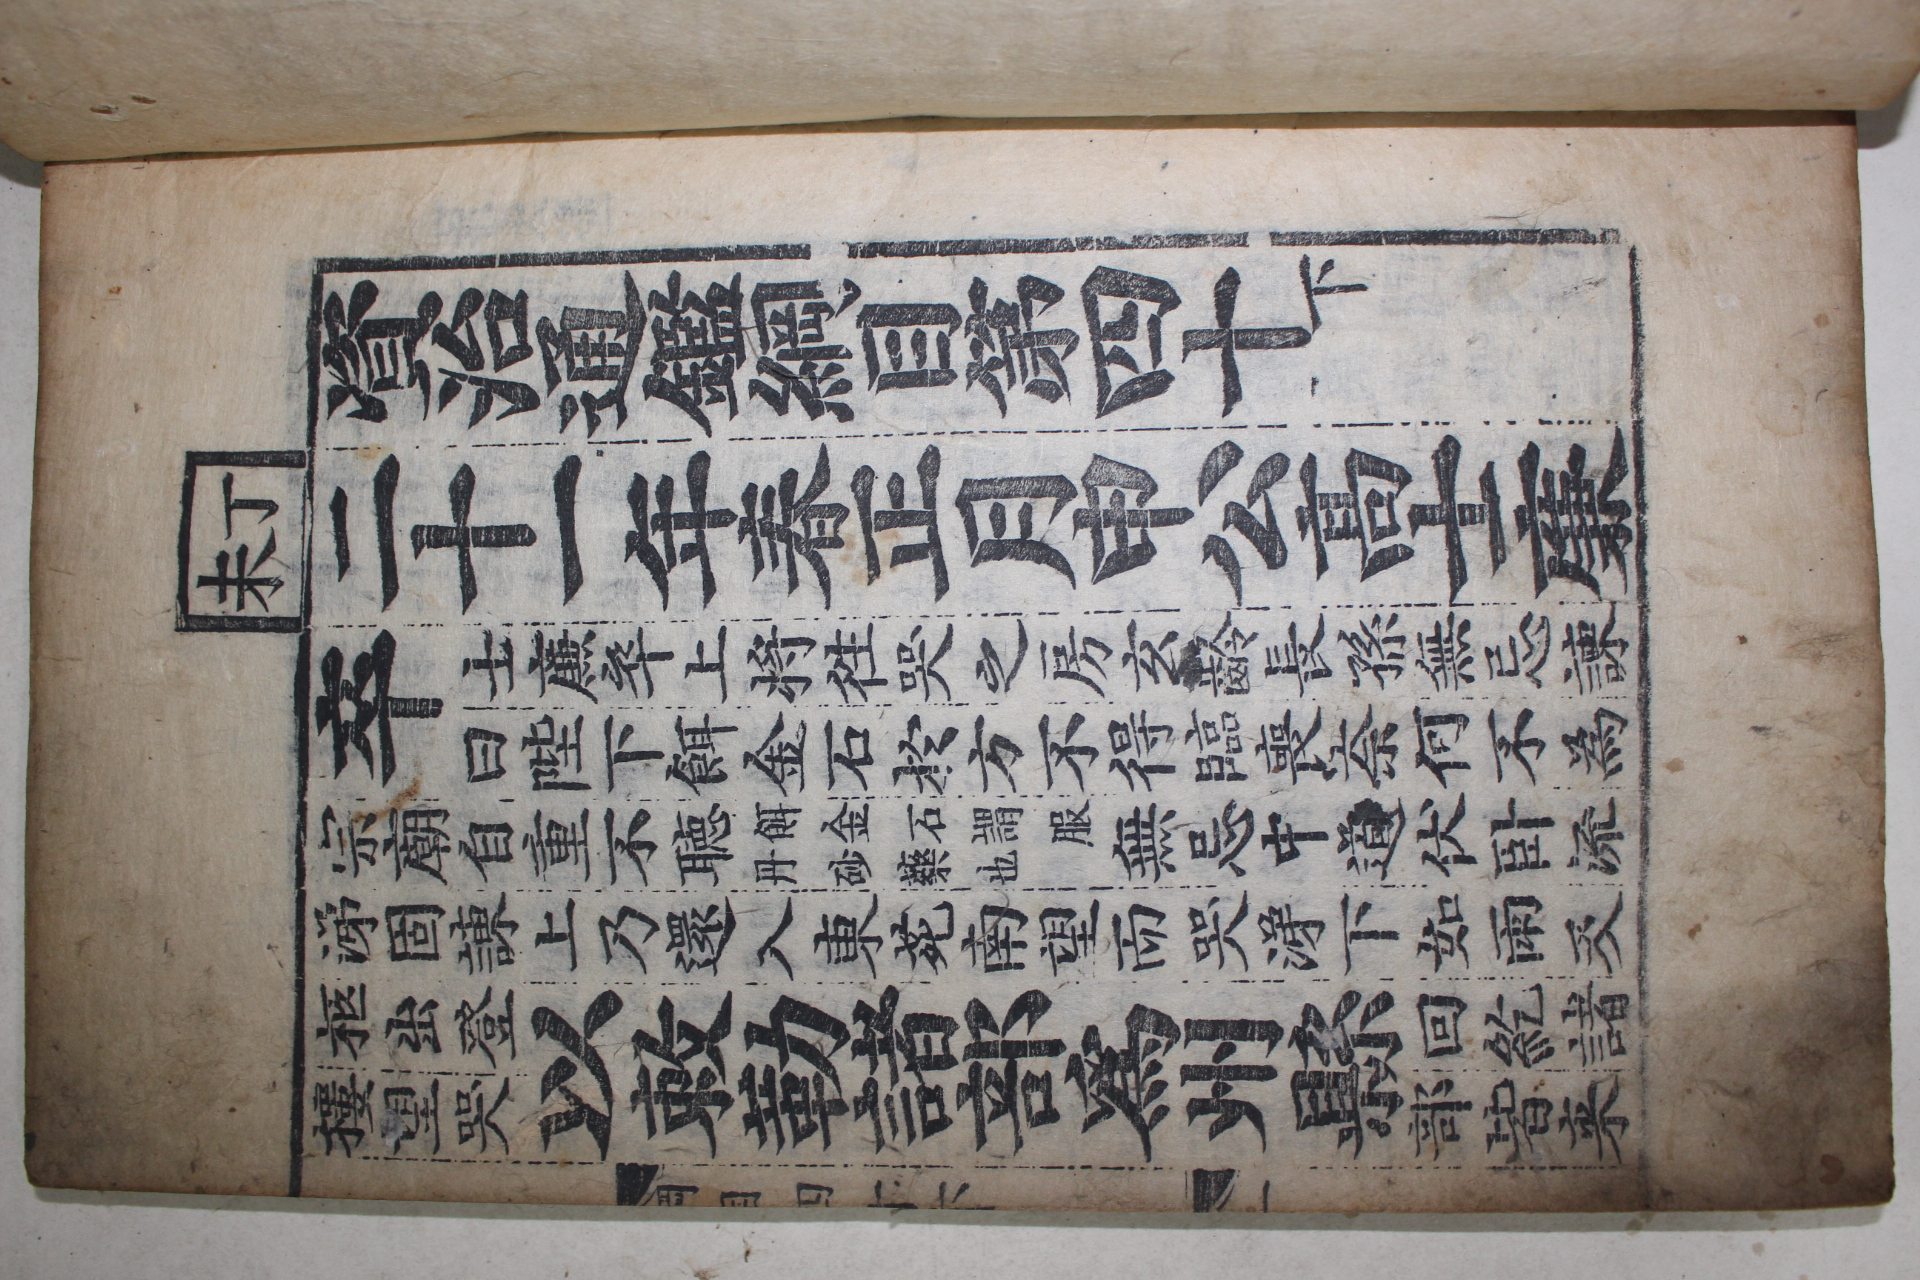 丁未
資治通鑑綱目第四十下
二十一年春正月申公高士廉
卒
士廉卒上將徃哭之房玄齡長孫無忌諫
曰陛下餌金石於方不得臨喪柰何不為
宗廟自重不聽
餌金石謂服
丹砂藥也
無忌中道伏臥流
涕固諫上乃還入東苑南望而哭涕下如雨及
柩出登
樓望哭
以敕勒諸部爲州縣
回紇諸
部皆来